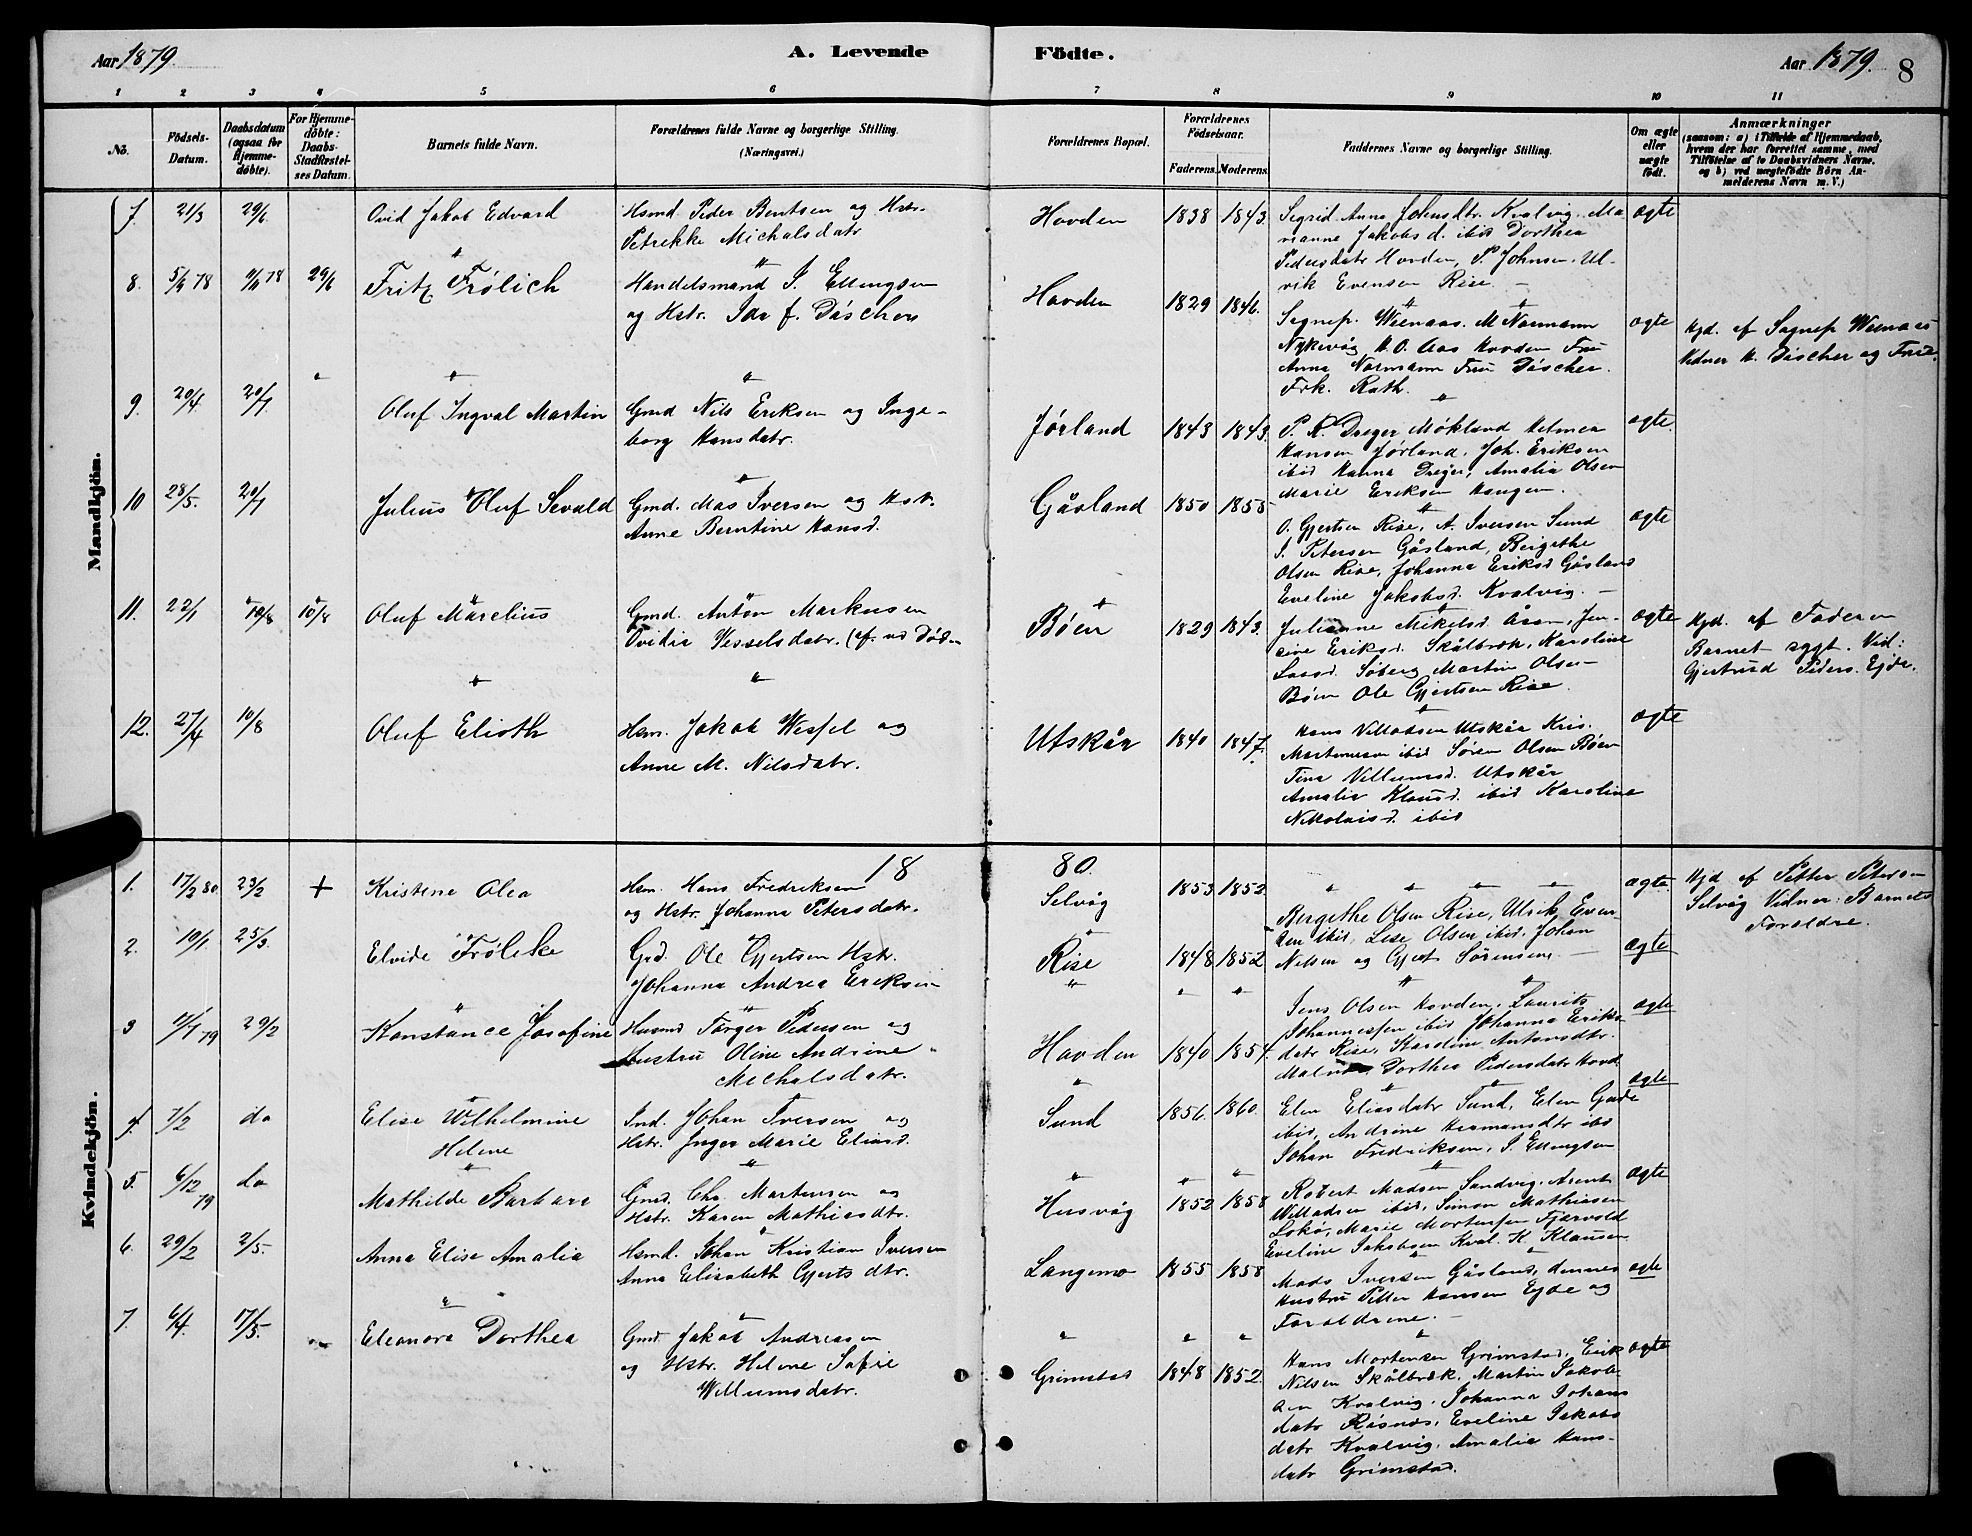 Aar 1879. A. Levende Födte. Aar 1879. 8
1 2 3 4 5 6 7 8 9 10 11
No.
Födsels-
Datum.
Daabsdatum
(ogsaa for
Hjemme-
döbte).
For Hjemme-
döbte:
Daabs-
Stadfæstel-
ses Datum.
Barnets fulde Navn.
Forældrenes fulde Navne og borgerlige Stilling.
(Næringsvei.)
Forældrenes Bopæl.
Forældrenes
Födselsaar.
Faderens. Moderens.
Faddernes Navne og borgerlige Stilling.
Om ægte
eller
uægte
født.
Anmærkninger
(saasom: a) i Tilfælde af Hjemmedaab,
hvem der har forrettet samme, med
Tilföielse af to Daabsvidners Navne.
og b) ved uægtefödte Börn An-
melderens Navn m. V.)
Mandkjön.
7. 21/3 29/6 Ovid Jakob Edvard
Hsmd. Peder Bentsen og Hstr.
Petrekke Michalsdatr
Hovden 1838 1843.
Segrid Anna Johnsdtr. Kvalvig. Ma-
rianne Jakobsd. ibid Dorthea
Pedersdatr Hovden, P. Johnsen. Ul-
vik Evensen Rise. —
ægte
8. 5/9 78 9/11 78 29/6 Fritz Frölich
Handelsmand J. Ellingsen
og Hstr. Ida f. Düscher
Hovden 1829 1846.
Sognep. Weenaas. M Normann
Nykvåg H. O. Aas Hovden Fru
Anna Normann Fru Düscher.
Frk. Rath.
ægte
Hjd. af Sognep Weenaas
Vidner H. Düscher og Frue.
9. 20/4 20/7 Oluf Ingval Martin
Gmd Nils Eriksen og Inge-
borg Hansdatr.
Jørland 1843 1843.
P. K. Dreyer Møkland Helmea
Hansen Jørland, Joh. Eriksen
ibid Hanna Dreyer, Amalia Olsen
Marie Eriksen Haugen.
ægte.
10 28/5. 20/7 Julius Oluf Sevald
Gmd. Mas Iversen og Hstr.
Anne Berntine Hansd.
Gåsland 1850 1855
O. Gjertsen Rise, A. Iversen Sund
J. Petersen Gåsland, Bergethe
Olsen Rise, Johanna Eriksd Gåsland
Eveline Jakobsd. Kvalvig. —
ægte
11. 22/1 10/8 10/8 Oluf Marelius
Gmd. Anton Markusen
Ovidia Vesselsdatr.
Bøen 1829 1843.
Julianne Mikelsd. Åsen, Jen-
sine Eriksd. Skålbrok, Karoline
Larsd. Søberg Martin Olsen
Bøen Ole Gjertsen Rise.
ægte
Hjd. af Faderen
Barnet sygt. Vid:
Gjertrud Peders. Ejde.
12. 27/4 10/8 Oluf Elioth
Hsm. Jakob Wessel og
Anne M. Nilsdatr.
Utskår 1840 1847.
Hans Villadsen Utskår Kris.
Martinusen ibid Søren Olsen Bøen
Tina Villumsd. Utskår
Amalie Klausd. ibid Karoline
Nikolaisd. ibid
ægte
1880.
Kvindekjön.
1. 17/2 80 23/2 + Kristine Olea
Hsm. Hans Fredriksen
og Hstr. Johanna Petersdatr.
Selvåg 1853 1852
ægte.
Hjd af Petter Peters-
Selvåg Vidner: Barnets
Foraldre.
2. 19/1 25/3. Elvide Frölike
Grd. Ole Gjertsen Hstr.
Johanna Andrea Eriksen
Rise 1848 1852
Bergethe Olsen Rise, Ulrik Even-
sen ibid, Lise Olsen ibid. Johan
Nilsen og Gjert Sørensen. —
ægte
3 11/7 79 29/2 Konstance Josefine
Husmd Törger Pedersen og
Hustru Oline Andrine
Michalsdatr.
Hovden 1840 1854.
Jens Olsen Hovden, Laurits
Johannessen ibid Johanna Eriks-
datr Rise, Karoline Antonsdtr.
Malnes, Dorthea Pedersdatr Hovd
ægte
4. 7/2 do Elise Wilhelmine
Helene
Ind. Johan Iversen og
Hstr. Inger Marie Eliasd.
Sund 1856. 1860.
Elen Eliasdatr Sund, Elen Gade
ibid, Andrine Hermansdtr ibd
Johan Fredriksen, J. Ellingsen
ægte
5. 6/12 79 do Mathilde Barbara
Gmd. Chr. Martensen og
Hstr. Karen Mathiasdtr.
Husvåg 1852 1858
Robert Madsen Sandvig, Arent
Willadsen ibid, Simon Mathiasen
Lokør, Marie Mortensen Fjærvold
Eveline Jakobsen Kval. K Klausen
ægte
6. 29/2 2/5 Anna Elise Amalia
Hsmd. Johan Kristian Iversen
Anna Elisabeth Gjerts dtr.
Langemo 1855 1858
Mads Iversen Gåsland, dennes
Hustru Petter Hansen Ejde og
Foraldrene. —
ægte
7. 6/4. 17/5. Eleanora Dorthea
Gmd. Jakob Andreasen
og Hstr. Helene Sofie
Willumsdatr.
Grimstad 1848 1852
Hans Mortensen Grimstad, Erik
Nilsen Skålbrok, Martin Jakob-
sen Kvalvig, Johanna Johans
datr Risnes, Eveline Jakobs
datr Kvalvig, Amalia Hans-
datr Grimstad.
ægte